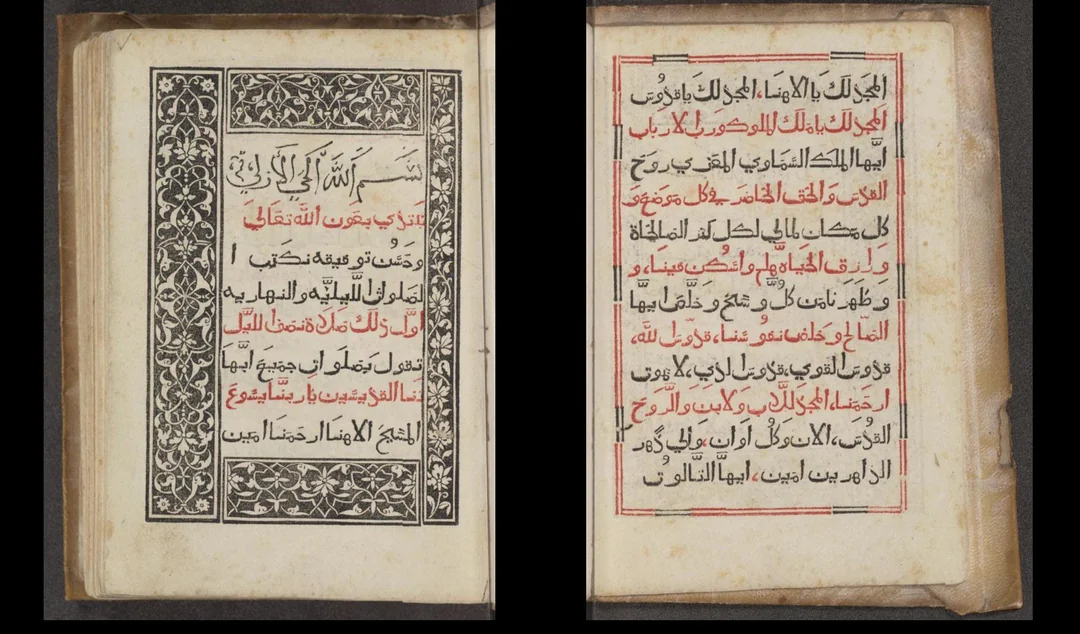 بسم الله الحي الازلي
نبتدي بعون الله تعالى
وحسن توفيقه نكتب ا
لصلوات الليليه والنهاريه
اول ذلك صلاة نصف الليل
تقول بصلوات جميع ابها
تنا القديسين يا ربنا يسوع
المسيح الاهنا ارحمنا امين
المجد لك يا الاهنا، المجد لك يا قدوس
المجد لك يا ملك الملوك ورب الارباب
ايها الملك السماوي المعزي روح
القدس والحق الحاضر في كل موضع و
كل مكان مالي لكل كنز الصالحاة
ورازق الحياه هلم واسكن فينا، و
وطهرنا من كل وسخ وخلص ايها
الصالح وخلص نفوسنا، قدوس الله،
قدوس القوي، قدوس الذي، لا يموت
ارحمنا، المجد للاب ولابن والروح
القدس، الان وكل اوان، والي دهر
الداهرين امين، ايها الثالوث